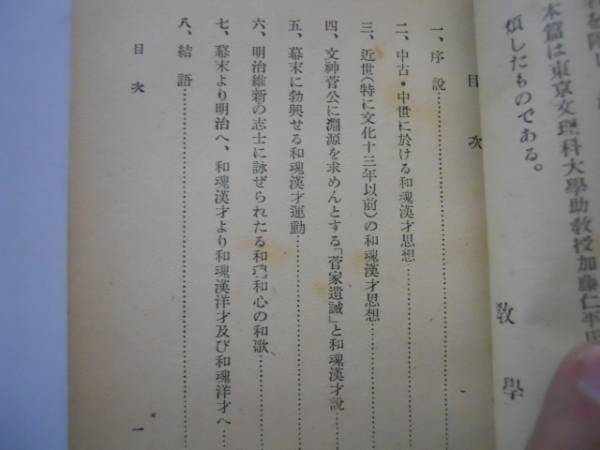 本篇は東京文理科大學助教授加藤仁平
煩したものである。
敎學
目次
一、序說
二、中古・中世に於ける和魂漢才思想
三、近世(特に文化十三年以前)の和魂漢才思想
四、文神菅公に淵源を求めんとする「菅家遺誡」と和魂漢才說
五、幕末に勃興せる和魂漢才運動
六、明治維新の志士に詠ぜられたる和魂和心の和歌
七、幕末より明治へ、和魂漢才より和魂漢洋才及び和魂洋才へ
八、結語
目次
一